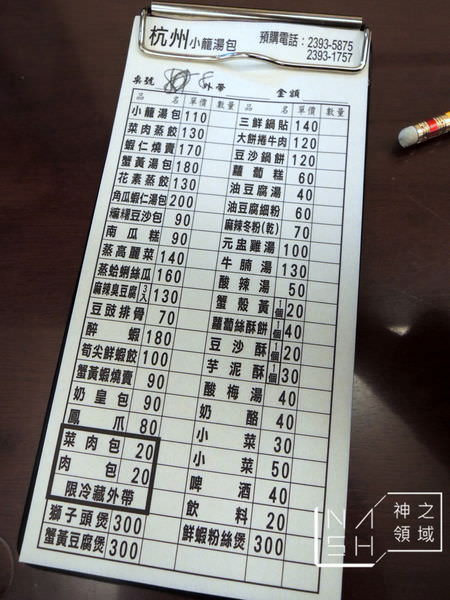 杭州小籠湯包 預購電話：2393-5875
2393-1757
桌號 8 外帶 金額
品名 單價 數量 品名 單價 數量
小籠湯包 110
菜肉蒸餃 130
蝦仁燒賣 170
蟹黃湯包 180
花素蒸餃 130
角瓜蝦仁湯包 200
豆沙包 90
南瓜糕 90
蒸高麗菜 140
蒸蛤蜊絲瓜 160
麻辣臭豆腐 3入 130
豆豉排骨 70
醉蝦 180
筍尖鮮蝦餃 100
蟹黃蝦燒賣 90
奶皇包 90
鳳爪 80
菜肉包 20
肉包 20
限冷藏外帶
獅子頭煲 300
蟹黃豆腐煲 300
三鮮鍋貼 140
大餅捲牛肉 120
豆沙鍋餅 120
蘿蔔糕 60
油豆腐湯 40
油豆腐細粉 60
麻辣冬粉(乾) 70
元盅雞湯 100
牛腩湯 130
酸辣湯 50
蟹殼黃 1個 20
蘿蔔絲酥餅 1個 40
豆沙酥 1個 20
芋泥酥 1個 30
酸梅湯 40
奶酪 40
小菜 30
小菜 50
啤酒 40
飲料 20
鮮蝦粉絲煲 300
NASH 神之領域